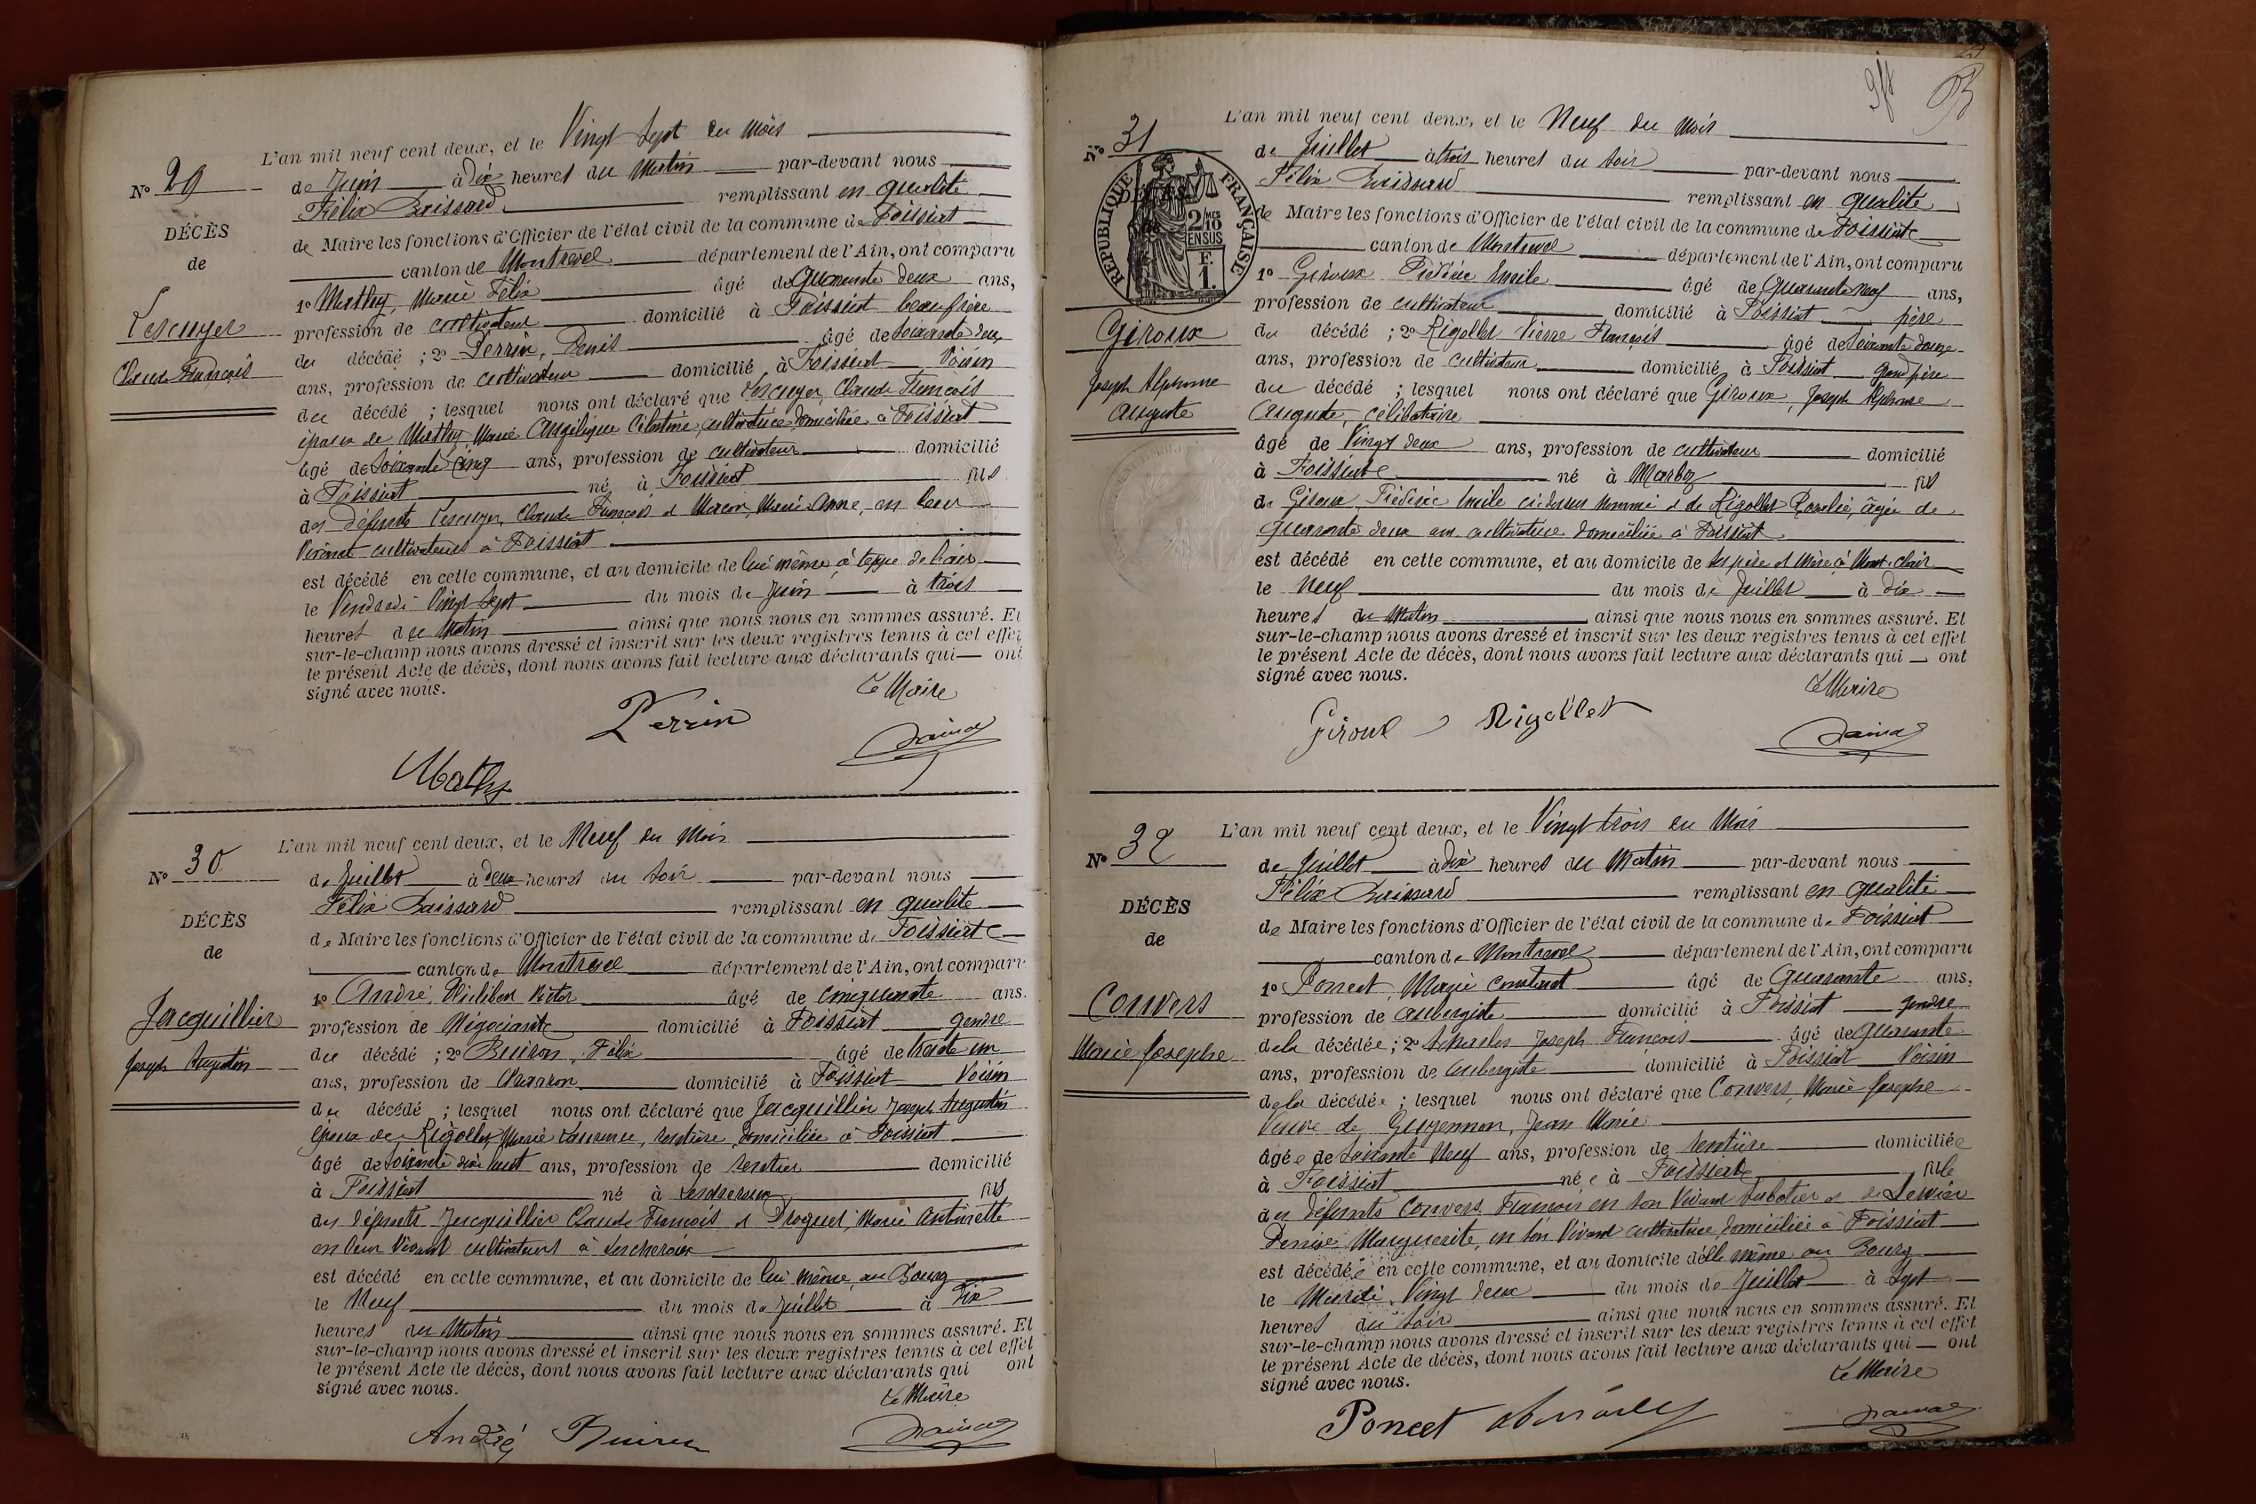 L'an mil neuf cent deux, et le Vingt Sept du Mois
N° 29
de Juin à dix heures du Matin par-devant nous
Félix remplissant en qualité
DÉCÈS
de Maire les fonctions d'Officier de l'état civil de la commune de Foissiat
de
canton de Montrevel département de l'Ain, ont comparu
1° Mathy, Marie Félix âgé de Quarante deux ans,
Lescuyer
profession de cultivateur domicilié à Foissiat beau frère
du décédé ; 2° Perrin, Denis âgé de Soixante deux
Claude François
ans, profession de cultivateur domicilié à Foissiat Voisin
du décédé ; lesquel nous ont déclaré que Lescuyer, Claude François
époux de Mathy, Marie Angélique Célestine, cultivatrice domiciliée à Foissiat
âgé de Soixante cinq ans, profession de cultivateur domicilié
à Foissiat né à Foissiat fils
des défunts Lescuyer, Claude François et Marie Anne, en leur
Vivant cultivateurs à Foissiat
est décédé en cette commune, et au domicile de lui même, à
le Vendredi Vingt Sept du mois de Juin à trois
heures du Matin ainsi que nous nous en sommes assuré. Et
sur-le-champ nous avons dressé et inscrit sur les deux registres tenus à cet effet
le présent Acte de décès, dont nous avons fait lecture aux déclarants qui ont
signé avec nous.
Le Maire
Perrin
Mathy
L'an mil neuf cent deux, et le Neuf du Mois
N° 30
de Juillet à deux heures du Soir par-devant nous
Félix remplissant en qualité
DÉCÈS
de Maire les fonctions d'Officier de l'état civil de la commune de Foissiat
de
canton de Montrevel département de l'Ain, ont comparu
1° André, Victor âgé de cinquante ans.
Jacquillier
profession de Négociant domicilié à Foissiat gendre
du décédé ; 2° Buiron, Félix âgé de trente un
Joseph Augustin
ans, profession de Charron domicilié à Foissiat Voisin
du décédé ; lesquel nous ont déclaré que Jacquillier Joseph Augustin
époux de Rigollet Marie Laurence, rentière, domiciliée à Foissiat
âgé de soixante dix huit ans, profession de rentier domicilié
à Foissiat né à Lescheroux fils
des défunts Jacquillier Claude François et Marie Antoinette
en leur Vivant cultivateurs à Lescheroux
est décédé en cette commune, et au domicile de lui même, au Bourg
le Neuf du mois de Juillet à dix
heures du Matin ainsi que nous nous en sommes assuré. Et
sur-le-champ nous avons dressé et inscrit sur les deux registres tenus à cet effet
le présent Acte de décès, dont nous avons fait lecture aux déclarants qui ont
signé avec nous.
Le Maire
André Buiron
L'an mil neuf cent deux, et le Neuf du Mois
N° 31
de Juillet à trois heures du Soir par-devant nous
Félix remplissant en qualité
RÉPUBLIQUE FRANÇAISE
2/10 EN SUS
F. 1.
de Maire les fonctions d'Officier de l'état civil de la commune de Foissiat
canton de Montrevel département de l'Ain, ont comparu
1° Giroux Frédéric Emile âgé de Quarante neuf ans,
profession de cultivateur domicilié à Foissiat père
Giroux
du décédé ; 2° Rigollet Pierre François âgé de Soixante douze
ans, profession de cultivateur domicilié à Foissiat grand père
Joseph Alphonse
du décédé ; lesquel nous ont déclaré que Giroux, Joseph Alphonse
Auguste
Auguste, célibataire
âgé de Vingt deux ans, profession de cultivateur domicilié
à Foissiat né à Marboz fils
de Giroux Frédéric Emile ci dessus nommé et de Rigollet Rosalie, âgée de
quarante deux ans cultivatrice domiciliée à Foissiat
est décédé en cette commune, et au domicile de ses père et Mère à
le Neuf du mois de Juillet à dix
heures du Matin ainsi que nous nous en sommes assuré. Et
sur-le-champ nous avons dressé et inscrit sur les deux registres tenus à cet effet
le présent Acte de décès, dont nous avons fait lecture aux déclarants qui ont
signé avec nous.
Le Maire
Giroux Rigollet
L'an mil neuf cent deux, et le Vingt trois du Mois
N° 32
de Juillet à dix heures du Matin par-devant nous
Félix remplissant en qualité
DÉCÈS
de Maire les fonctions d'Officier de l'état civil de la commune de Foissiat
de
canton de Montrevel département de l'Ain, ont comparu
1° Poncet, Marie Constant âgé de Quarante ans,
Convers
profession de aubergiste domicilié à Foissiat gendre
de la décédée ; 2° Joseph François âgé de Quarante
Marie Josephe
ans, profession de aubergiste domicilié à Foissiat Voisin
de la décédée ; lesquel nous ont déclaré que Convers, Marie Josephe
Veuve de Guyennon, Jean Marie
âgée de Soixante Neuf ans, profession de rentière domiciliée
à Foissiat née à Foissiat fille
des défunts Convers François en son Vivant Sabotier et de
Denise Marguerite, en son Vivant cultivatrice, domiciliée à Foissiat
est décédée en cette commune, et au domicile d'elle même au Bourg
le Mardi Vingt deux du mois de Juillet à Sept
heures du Soir ainsi que nous nous en sommes assuré. Et
sur-le-champ nous avons dressé et inscrit sur les deux registres tenus à cet effet
le présent Acte de décès, dont nous avons fait lecture aux déclarants qui ont
signé avec nous.
Le Maire
Poncet